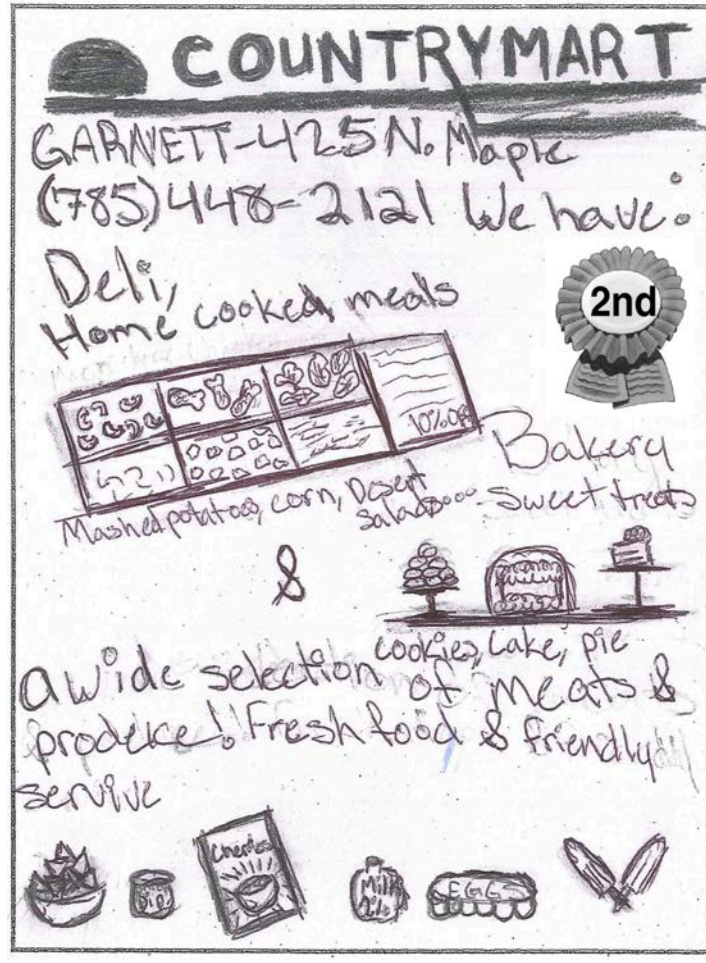 COUNTRYMART
GARNETT-425 N. Maple
(785)448-2121 We have:
Deli,
Home cooked meals
2nd
10% Off
Bakery
Mashed potatoes, corn, Desert
salads....
sweet treats
&
cookies, cake, pie
a wide selection of meats &
produce! Fresh food & friendly
servive
Cheerios
Dip
Milk
EGGS